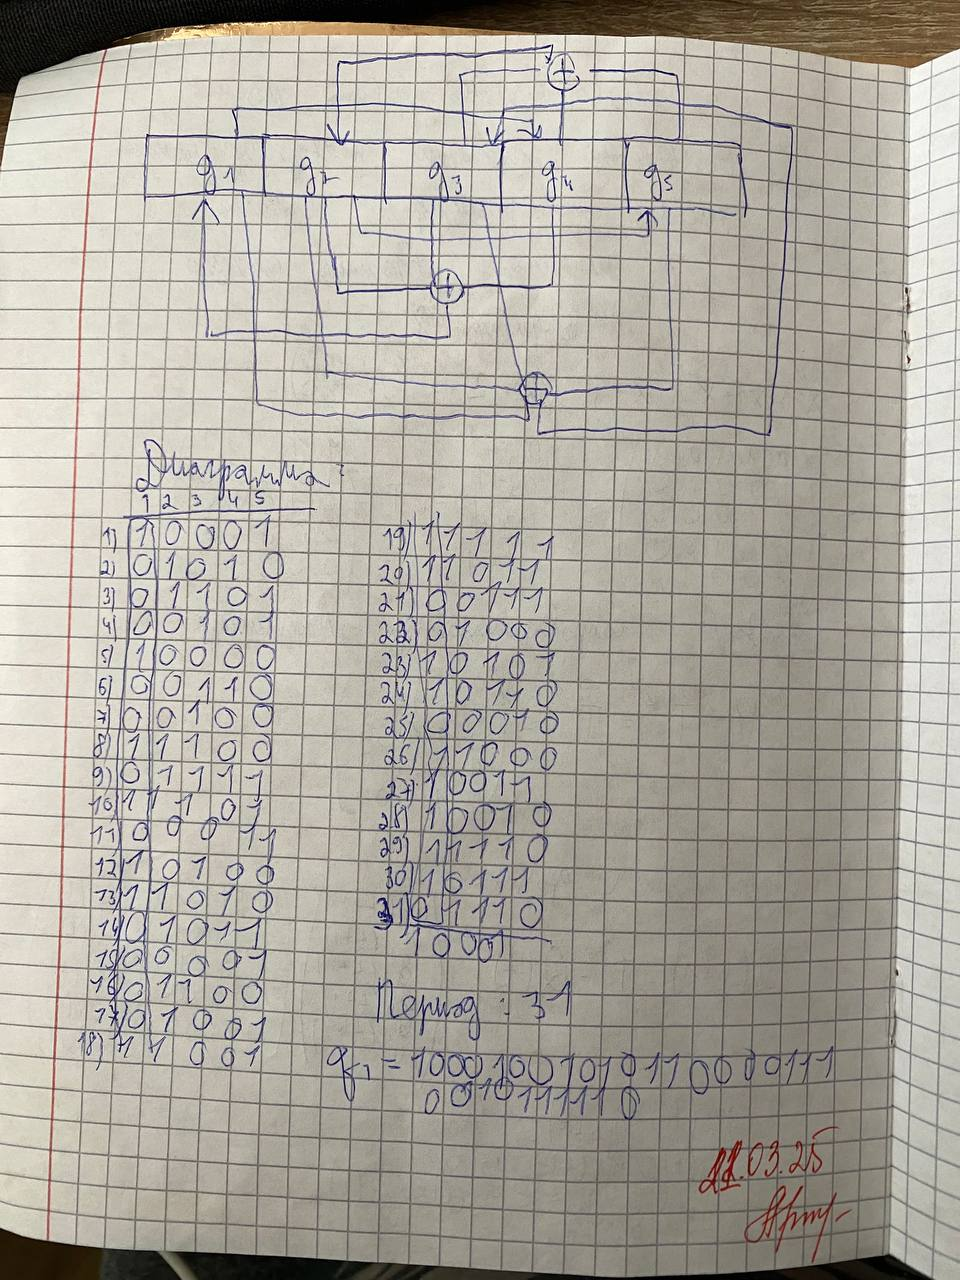 g1 g2 g3 g4 g5
Диаграмма:
1 2 3 4 5
1) 1 0 0 0 1
2) 0 1 0 1 0
3) 0 1 1 0 1
4) 0 0 1 0 1
5) 1 0 0 0 0
6) 0 0 1 1 0
7) 0 0 1 0 0
8) 1 1 1 0 0
9) 0 1 1 1 1
10) 1 1 1 0 1
11) 0 0 0 1 1
12) 1 0 1 0 0
13) 1 1 0 1 0
14) 0 1 0 1 1
15) 0 0 0 0 1
16) 0 1 1 0 0
17) 0 1 0 0 1
18) 1 1 0 0 1
19) 1 1 1 1 1
20) 1 1 0 1 1
21) 0 0 1 1 1
22) 0 1 0 0 0
23) 1 0 1 0 1
24) 1 0 1 1 0
25) 0 0 0 1 0
26) 1 1 0 0 0
27) 1 0 0 1 1
28) 1 0 0 1 0
29) 1 1 1 1 0
30) 1 0 1 1 1
31) 0 1 1 1 0
1 0 0 0 1
Период: 31
g1 = 10001001010110000111
00101111110